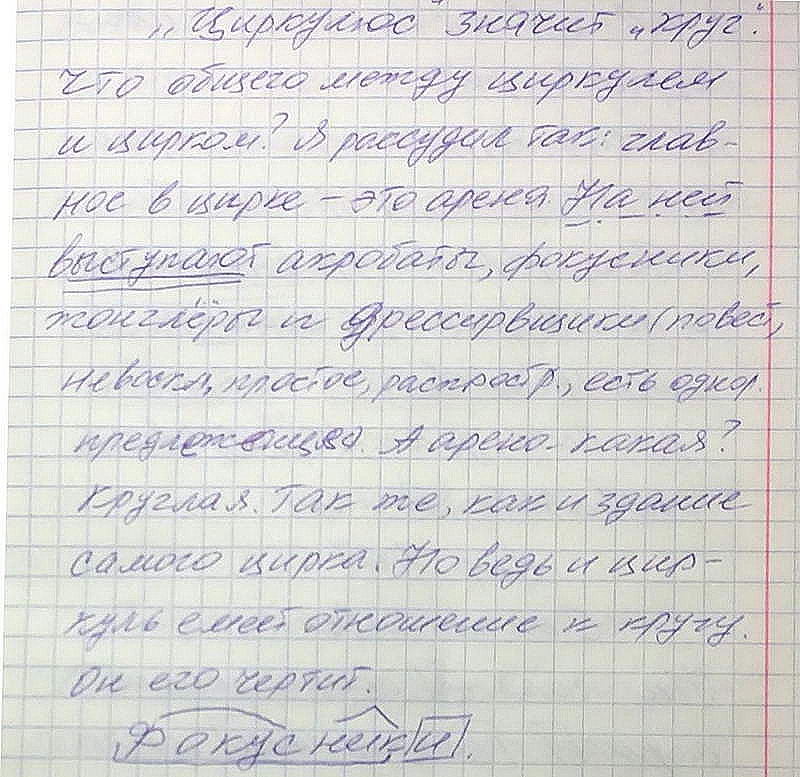 „Циркулюс" значит „круг".
Что общего между циркулем
и цирком? Я рассудил так: глав-
ное в цирке – это арена. На ней
выступают акробаты, фокусники,
жонглёры и дрессирвщики (повест,
невоскл, простое, распростр., есть однор.
предложения. А арена - какая?
Круглая. Так же, как и здание
самого цирка. Но ведь и цир-
куль емеет отношение к кругу.
Он его чертит.
Фокусники.